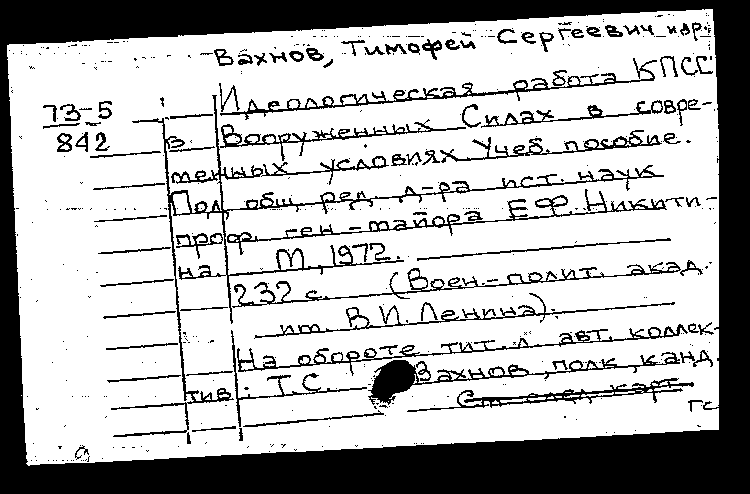 Вахнов, Тимофей Сергеевич и др.
73-5
842
Идеологическая работа КПСС
в Вооруженных Силах в совре-
менных условиях. Учеб. пособие.
Под общ. ред. д-ра ист. наук
проф. ген-майора Е.Ф. Никити-
на. М., 1972.
232 с. (Воен.-полит. акад.
им. В.И. Ленина).
На обороте тит. л. авт. коллек-
тив: Т.С. Вахнов, полк, канд.
См след. карт.
Гс